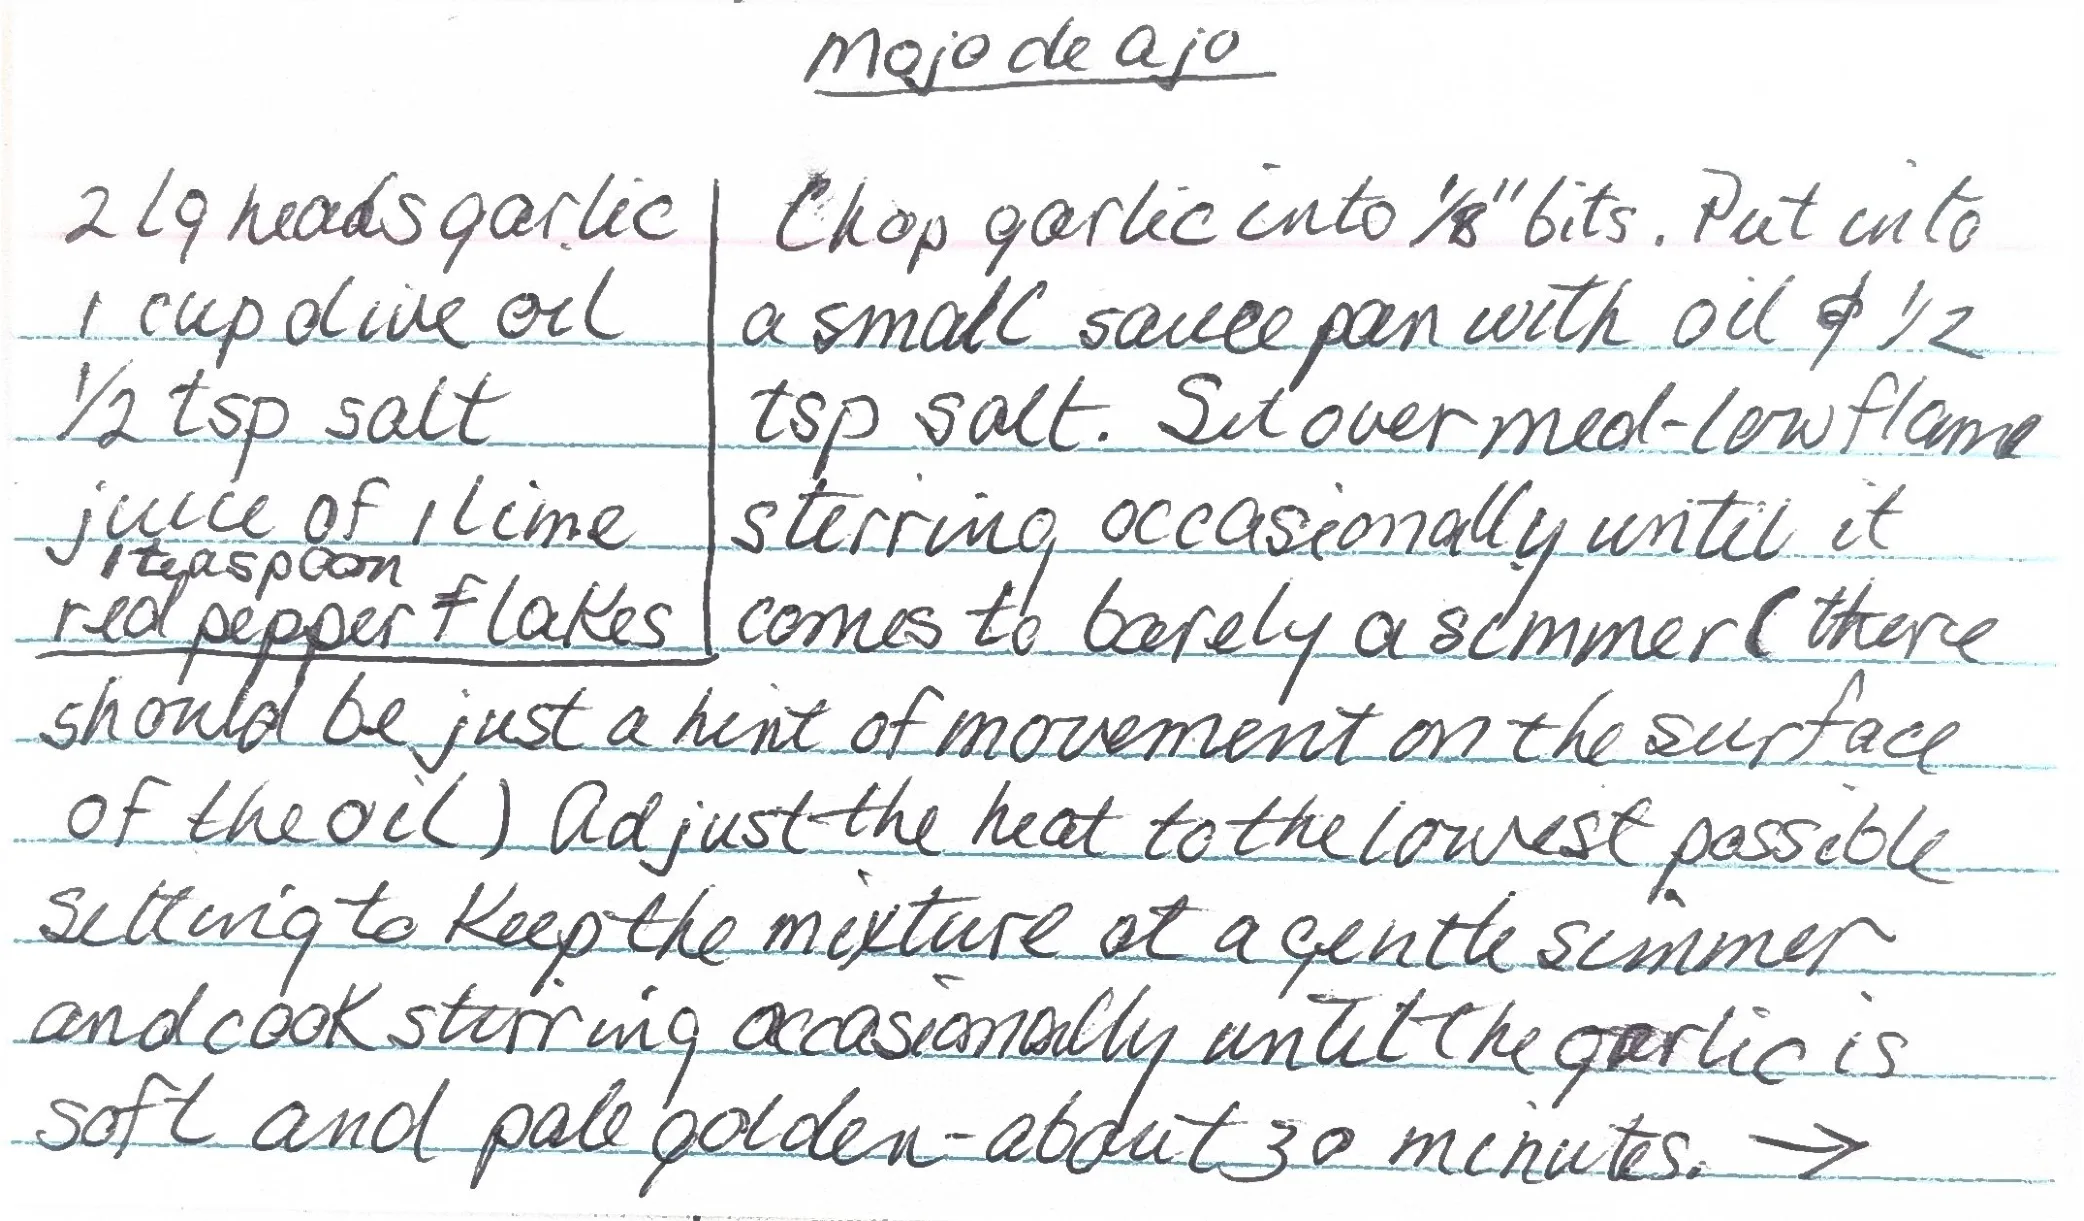 Mojo de ajo
2 lg heads garlic
1 cup olive oil
1/2 tsp salt
juice of 1 lime
1 teaspoon
red pepper flakes
Chop garlic into 1/8" bits. Put into
a small sauce pan with oil & 1/2
tsp salt. Set over med-low flame
stirring occasionally until it
comes to barely a simmer (there
should be just a hint of movement on the surface
of the oil) Adjust the heat to the lowest possible
setting to keep the mixture at a gentle simmer
and cook stirring occasionally until the garlic is
soft and pale golden - about 30 minutes. →